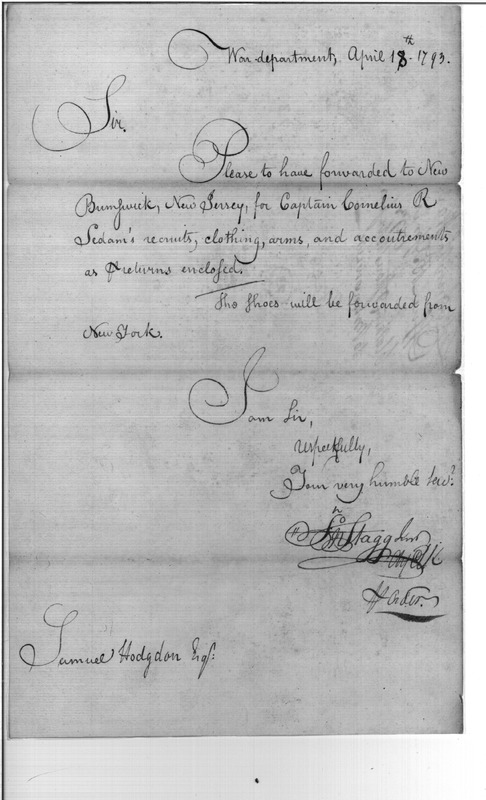 War department, April 18th 1793.
Sir.
Please to have forwarded to New
Brunswick, New Jersey, for Captain Cornelius R
Sedam's recruits, clothing, arms, and accoutrements
as ⅌ returns enclosed.
The shoes will be forwarded from
New York.
I am Sir,
respectfully,
Your very humble Servt.
Jno Stagg Junr
Chf Clk
Samuel Hodgdon Esqr.